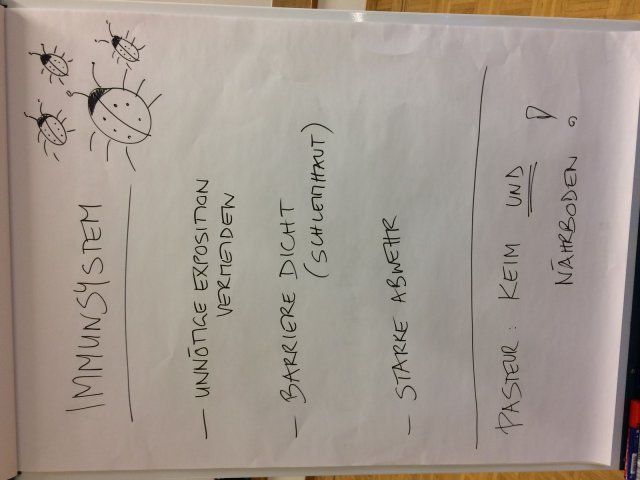 IMMUNSYSTEM
– UNNÖTIGE EXPOSITION
VERMEIDEN
– BARRIERE DICHT
(SCHLEIMHAUT)
– STARKE ABWEHR
PASTEUR: KEIM UND
NÄHRBODEN!